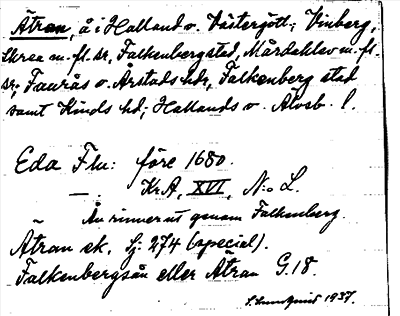 Ätran, å i Halland o. Västergötl.; Vinberg,
Skrea m. fl. sr, Falkenbergs stad, Mårdaklev m. fl.
sr; Faurås o. Årstads hdr, Falkenberg stad
samt Kinds hd; Hallands o. Älvsb. l.
Eda Flu: före 1680.
— . Kr.A, XVI, N:o L.
Ån rinner ut genom Falkenberg.
Ätran ek. Sj: 274 (special).
Falkenbergsån eller Ätran G. 18.
S. Lundquist 1937.